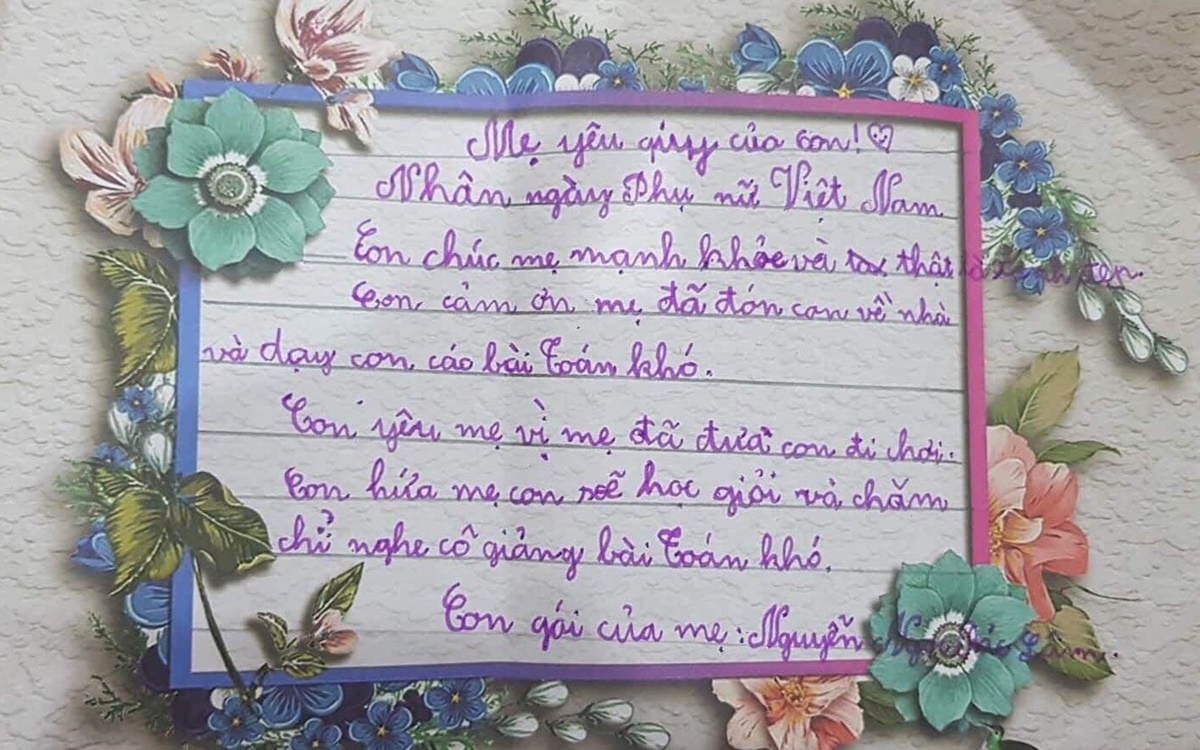 Mẹ yêu quý của con!
Nhân ngày Phụ nữ Việt Nam
Con chúc mẹ mạnh khỏe và thật là xinh đẹp.
Con cảm ơn mẹ đã đón con về nhà
và dạy con cáo bài Toán khó.
Con yêu mẹ vì mẹ đã đưa con đi chơi.
Con hứa mẹ con sẽ học giỏi và chăm
chỉ nghe cô giảng bài Toán khó.
Con gái của mẹ: Nguyễn